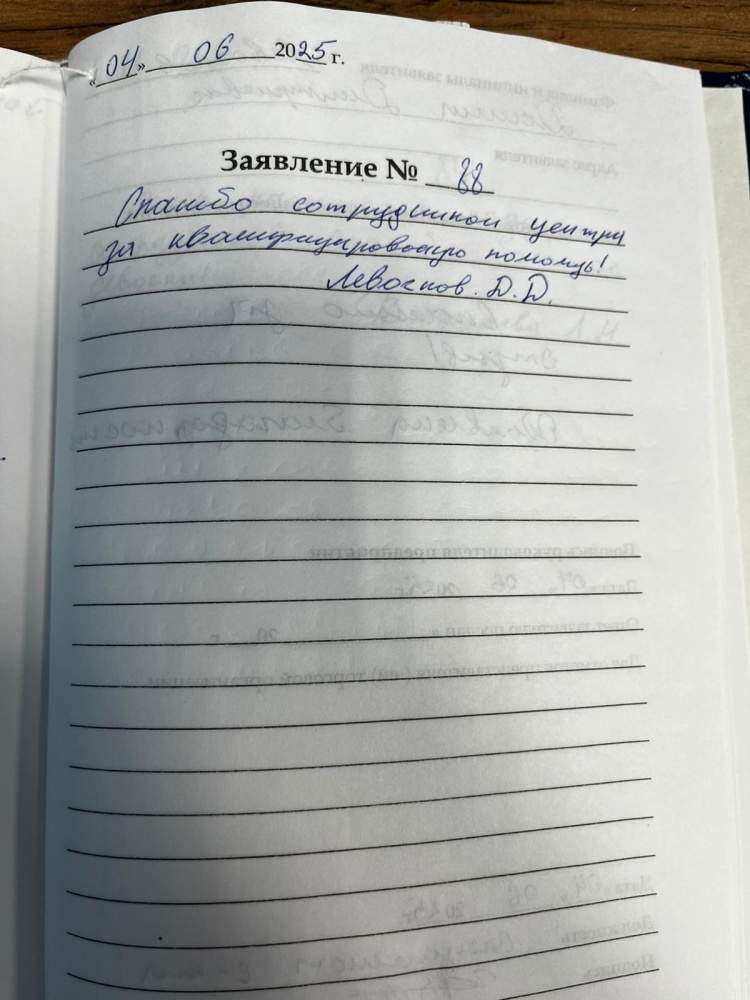 «04» 06 2025 г.
Заявление № 88
Спасибо сотрудникам центра
за квалифицированную помощь!
Д.Д.